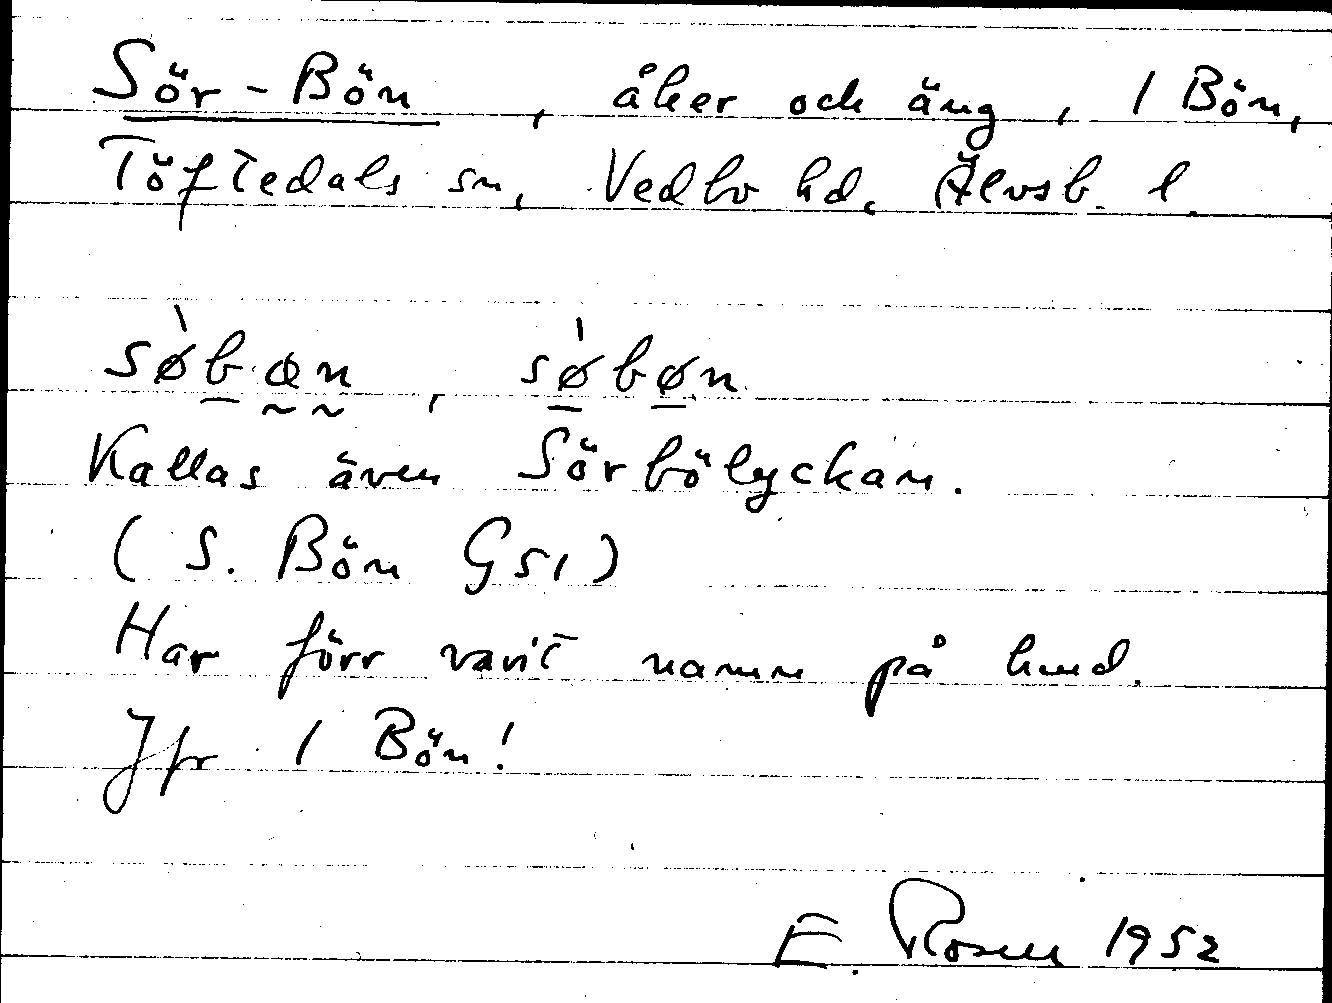 Sör-Bön, åker och äng, 1 Bön,
Töftedals sn, Vedbo hd, Älvsb. l.
sø̀bøn, sø̀bøn
Kallas även Sörbölyckan.
(S. Bön G51)
Har förr varit namn på hmd.
Jfr 1 Bön!
E. Rosen 1952